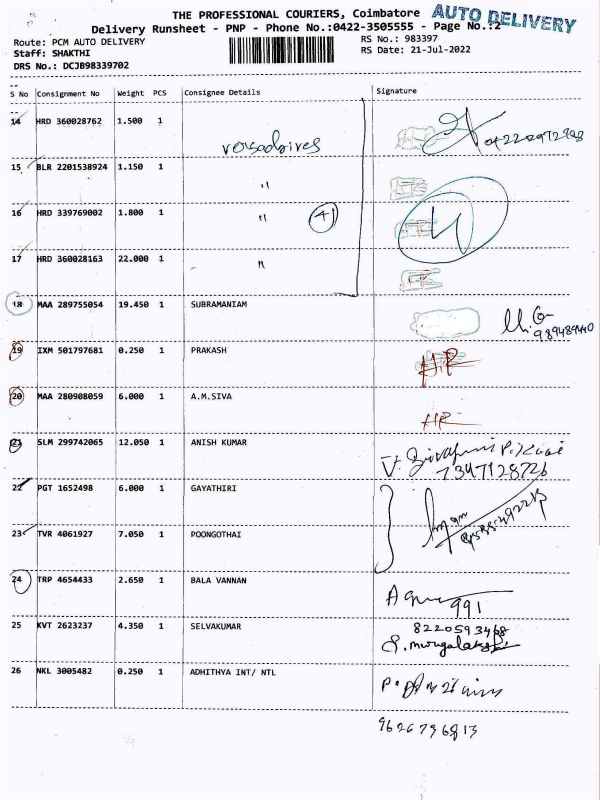 THE PROFESSIONAL COURIERS, Coimbatore AUTO DELIVERY
Delivery Runsheet - PNP - Phone No.:0422-3505555 - Page No.:2
Route: PCM AUTO DELIVERY RS No.: 983397
Staff: SHAKTHI RS Date: 21-Jul-2022
DRS No.: DCJB98339702
S No Consignment No Weight PCS Consignee Details Signature
14 HRD 360028762 1.500 1
15 BLR 2201538924 1.150 1 "
16 HRD 339769002 1.800 1 " 41
17 HRD 360028163 22.000 1 "
18 MAA 289755054 19.450 1 SUBRAMANIAM
19 IXM 501797681 0.250 1 PRAKASH H.R
20 MAA 280908059 6.000 1 A.M.SIVA HR
21 SLM 299742065 12.050 1 ANISH KUMAR
7347128726
22 PGT 1652498 6.000 1 GAYATHIRI
23 TVR 4061927 7.050 1 POONGOTHAI
24 TRP 4654433 2.650 1 BALA VANNAN
991
25 KVT 2623237 4.350 1 SELVAKUMAR 8220593468
26 NKL 3005482 0.250 1 ADHITHYA INT/ NTL
9626796813